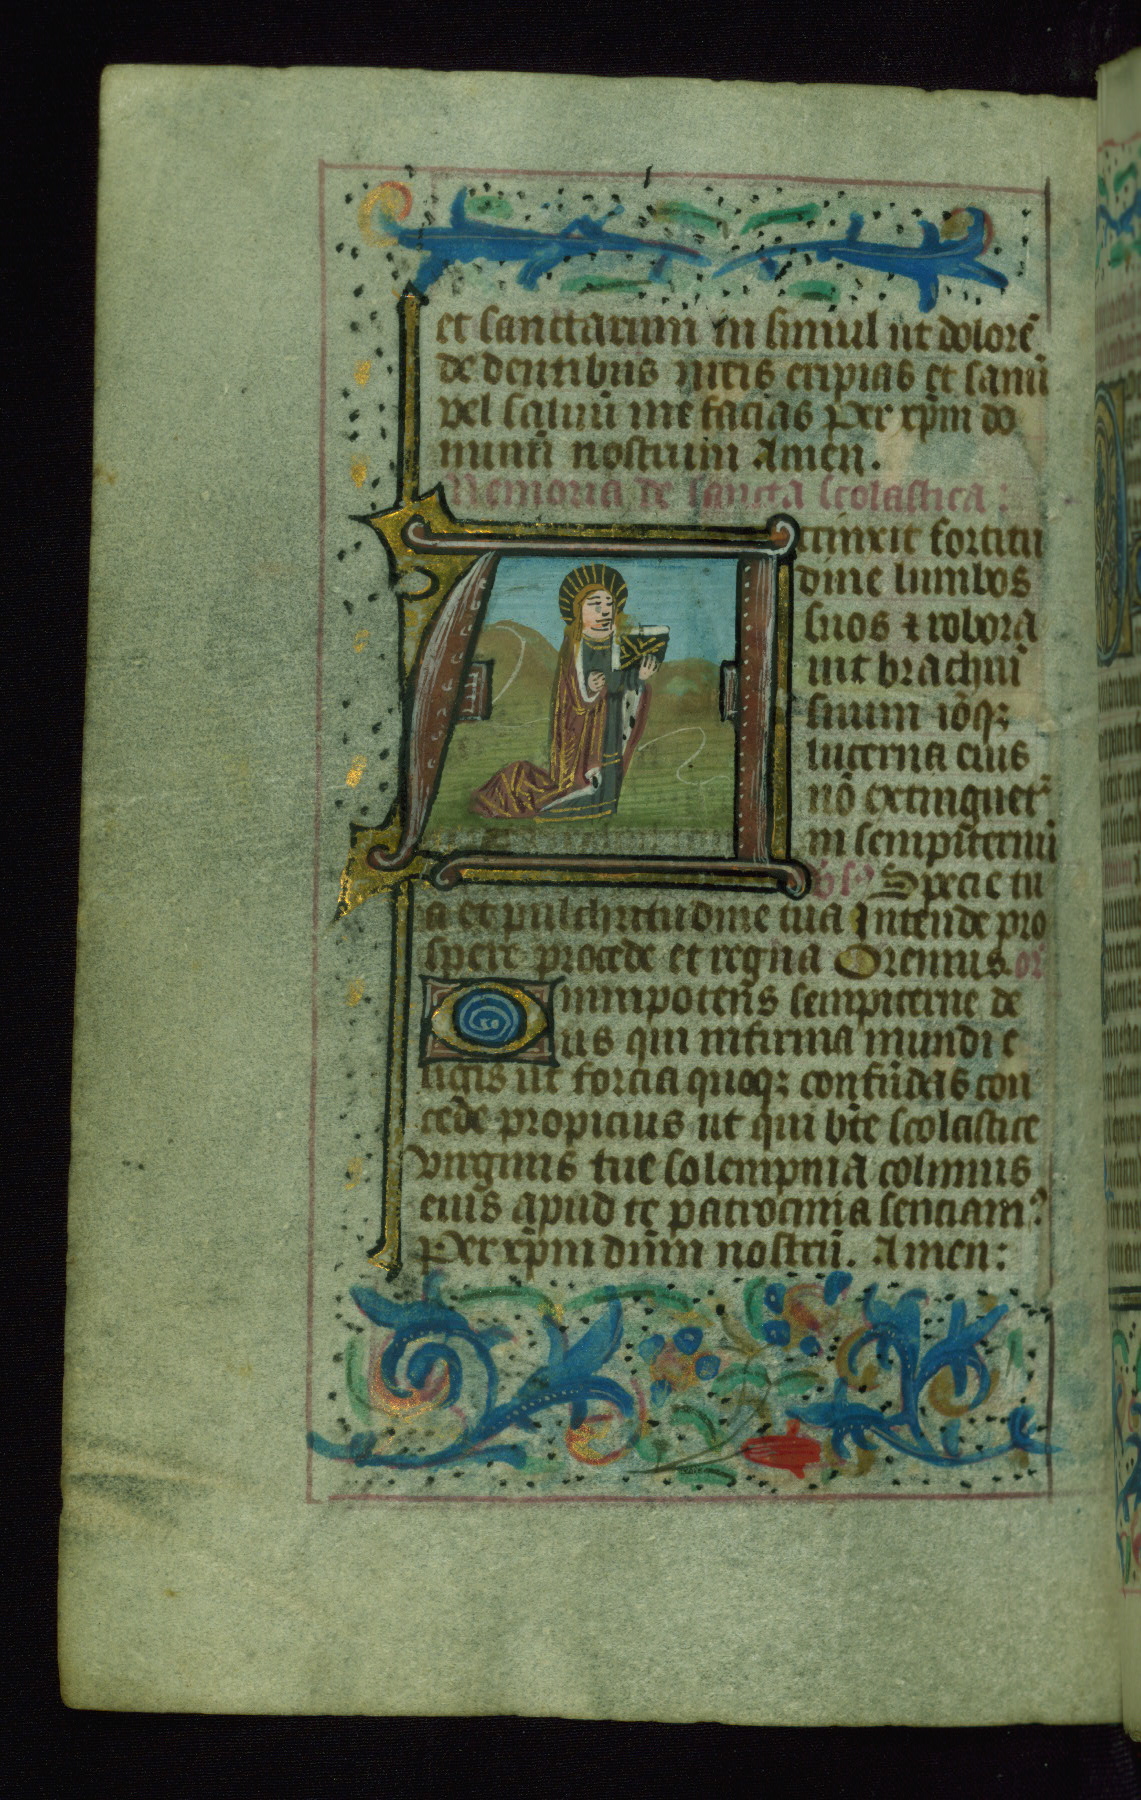 et sanctarum in simul ut dolorē
de dentibus meis eripias et sanū
vel saluū me facias Per xp̄m do
minū nostrum Amen.
Memoria de sancta scolastica:
Accinxit fortitu
dine lumbos
suos ⁊ robora
uit brachiū
suum iōqꝫ
lucerna eius
nō extinguet᷑
in sempiternū
Specie tu
a et pulchritudine tua Intende pro
spere procede et regna Oremus or̄
Omnipotens sempiterne de
us qui infirma mundi e
ligis ut forcia quoqꝫ confūdas con
cede propicius ut qui bt̄e scolastice
virginis tue solempnia colimus
eius apud te patrocinia senciam᷒
Per xp̄m dn̄m nostrū. Amen: